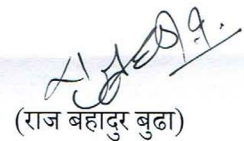 (राज बहादुर बुढा)